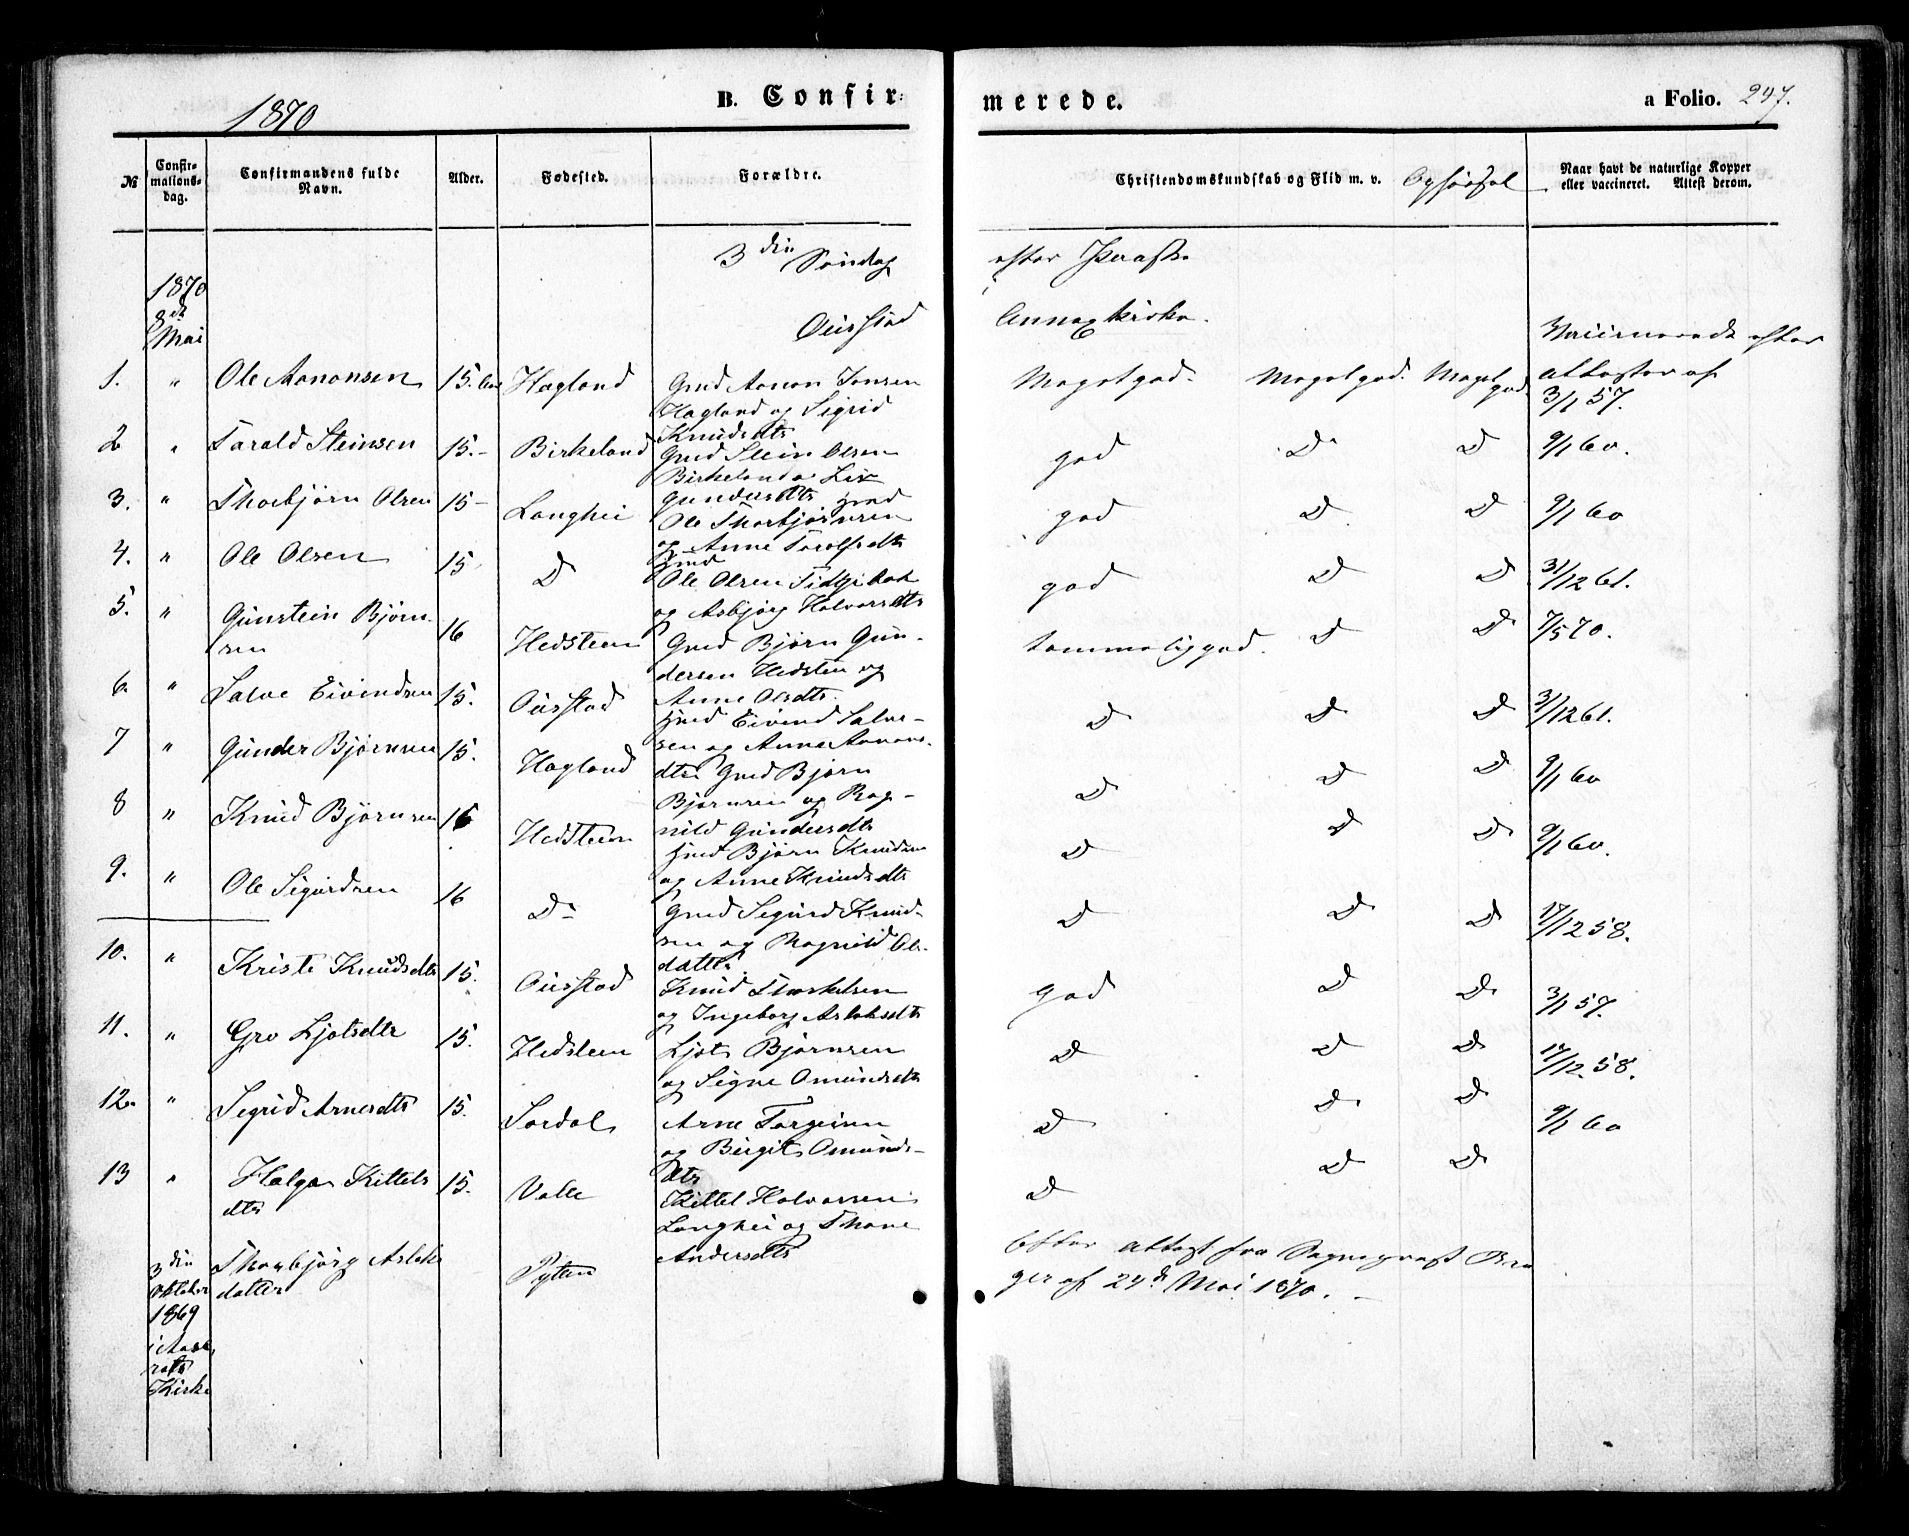 1870
B. Confir-
merede.
a Folio. 247.
№
Confir-
mations-
dag.
Confirmandens fulde
Navn.
Alder.
Fødested.
Forældre.
Christendomskundskab og Flid m. v. Opførsel
Naar havt de naturlige Kopper
eller vaccineret. Attest derom.
3die Søndag
efter Paaske
i
1870
8de
Mai
Ousstad
Annexkirke.
Vaccinerede efter
attester af
1. " Ole Aanonsen 15. Hagland Gmd Aanon Jonsen
Hagland og Sigrid
Knudsdtr
Meget god. Meget god. Meget god. 3/1 57.
2 " Tarald Steinsen 15.- Birkeland Gmd Stein Olsen
Birkeland o Liv
Gundersdtr
god D D 9/1 60.
3. " Thorbjørn Olsen 15- Langhei Hmd
Ole Thorbjørnsen
og Anne Torolfsdtr
god D D 9/1 60
4. " Ole Olsen 15 D Hmd
Ole Olsen
og Asbjørg Halvorsdtr
god D D 31/12 61.
5. " Gunstein Bjørn-
sen 16 Hedsteen Gmd Bjørn Gun-
dersen Hedsten og
Anne Olsdtr.
temmelig god. D D 7/5 70.
6. " Salve Eivindsen 15. Ousstad Hmd Eivind Salve-
sen og Anne Aanons-
dtr
D D D 31/12 61.
7 " Gunder Bjørnsen 15. Hagland Gmd Bjørn
Bjørnsen og Rag-
nild Gundersdtr
D D D 9/1 60
8 " Knud Bjørnsen 16 Hedsteen Hmd Bjørn Knudsen
og Anne Knudsdtr
D D D 9/1 60.
9. " Ole Sigurdsen 16 D- Gmd Sigurd Knud-
sen og Ragnild Ols-
datter.
D D D 17/12 58.
10. " Kristi Knudsdtr 15. Ousstad Knud Thorkelsen
og Ingeborg Aslaksdtr
God D D 3/1 57.
11. " Gro Ljotsdtr 15. Hedsteen Ljot Bjørnsen
og Signe Omundsdtr
D D D 17/12 58.
12. " Sigrid Arnesdtr 15. Sordal Arne Torgeirsen
og Birgit Omunds-
dtr
D D D 9/1 60
13 " Helga Kittels
dtr 15. Valle Kittel Halvorsen
Langhei og Thone
Andersdtr
D D D
3die
Oktober
1869
i Aase
rals
Kirke
Thorbjørg Aslaks
datter Pytten
Efter attest fra Sogneprest
af 24de Mai 1870.